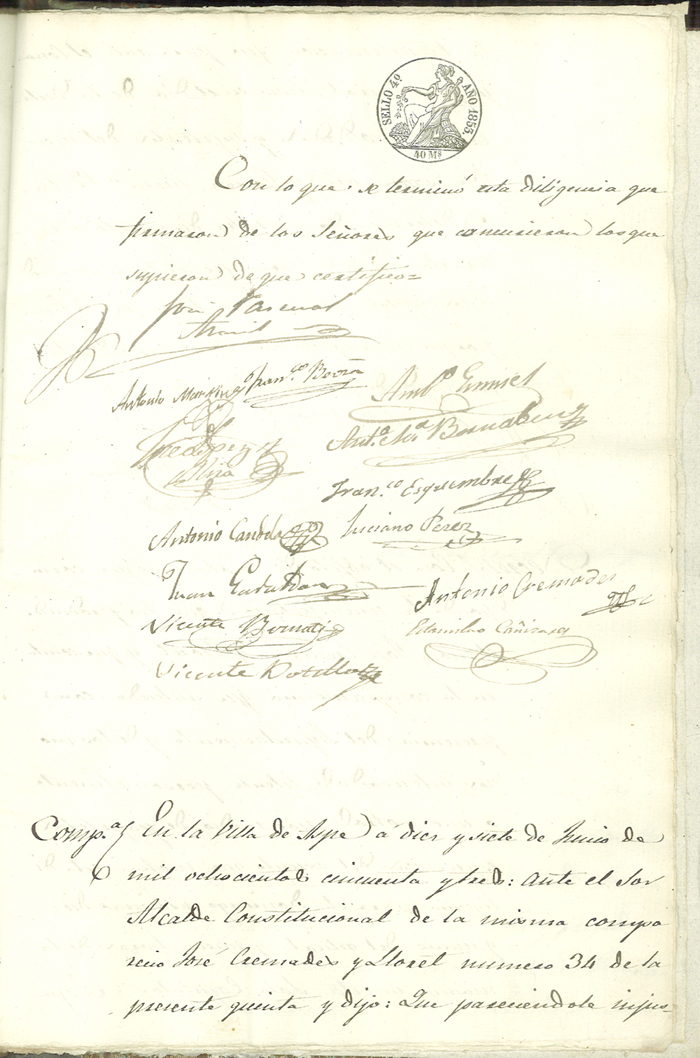 SELLO 4º AÑO 1853.
40 Ms
Con lo que se terminó esta diligencia que
firmaron de los Señores que comparecieron los que
supieron de que certifico=
José Pascual
Antonio Martinez Franco Boria
Antª Mª Bernabeu
Franco Esquembre
Antonio Candela Luciano Pérez
Juan
Antonio Cremades
Vicente Bernad
Estanislao Cañizares
Vicente Botella
Compª En la Villa de Aspe á diez y siete de Junio de
mil ochocientos cincuenta y tres: ante el Sor
Alcalde Constitucional de la misma compa
recio José Cremades y Lloret numero 34 de la
presente quinta y dijo: Que pareciendole injus-